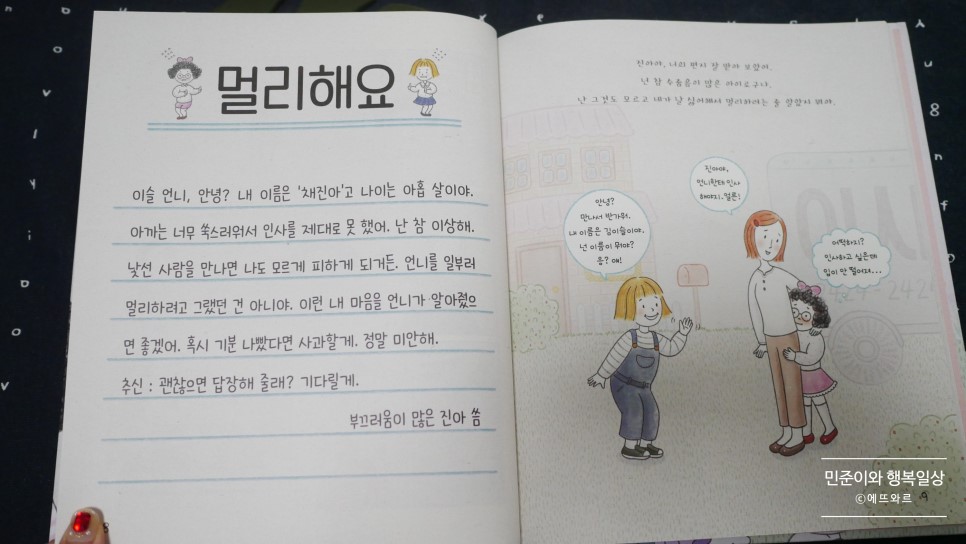 멀리해요
이슬 언니, 안녕? 내 이름은 '채진아'고 나이는 아홉 살이야.
아까는 너무 쑥스러워서 인사를 제대로 못 했어. 난 참 이상해.
낯선 사람을 만나면 나도 모르게 피하게 되거든. 언니를 일부러
멀리하려고 그랬던 건 아니야. 이런 내 마음을 언니가 알아줬으
면 좋겠어. 혹시 기분 나빴다면 사과할게. 정말 미안해.
추신 : 괜찮으면 답장해 줄래? 기다릴게.
부끄러움이 많은 진아 씀
진아야, 너의 편지 잘 받아 보았어.
넌 참 수줍음이 많은 아이로구나.
난 그것도 모르고 네가 날 싫어해서 멀리하려는 줄 알았지 뭐야.
진아야,
언니한테 인사
해야지. 얼른!
안녕?
만나서 반가워.
내 이름은 김이슬이야.
넌 이름이 뭐야?
응? 얘!
어떡하지?
인사하고 싶은데
입이 안 떨어져...
민준이와 행복일상
ⓒ에뜨와르